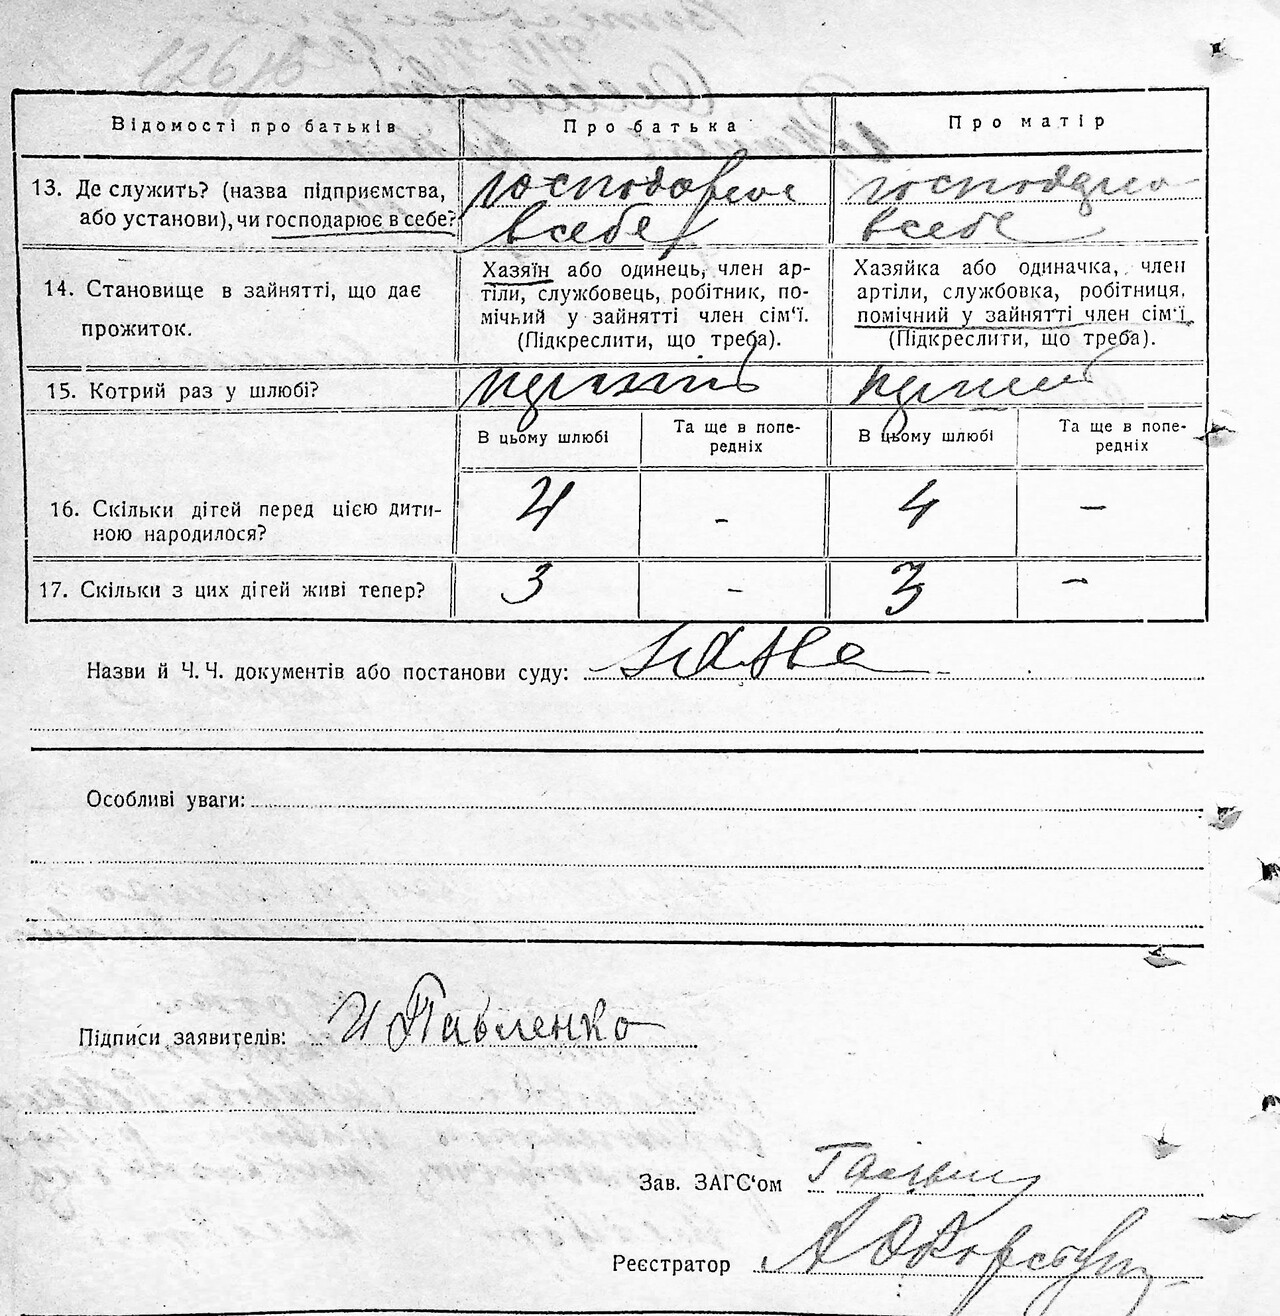 Відомості про батьків
Про батька
Про матір
13. Де служить? (назва підприємства,
або установи), чи господарює в себе?
господарює
в себе
господарює
в себе
14. Становище в зайнятті, що дає
прожиток.
Хазяїн або одинець, член ар-
тіли, службовець, робітник, по-
мічний у зайнятті член сім‘ї.
(Підкреслити, що треба).
Хазяйка або одиначка, член
артіли, службовка, робітниця,
помічний у зайнятті член сім‘ї
(Підкреслити, що треба).
15. Котрий раз у шлюбі?
В цьому шлюбі
Та ще в попе-
редніх
В цьому шлюбі
Та ще в попе-
редніх
16. Скільки дітей перед цією дити-
ною народилося?
4
-
4
-
17. Скільки з цих дітей живі тепер?
3
-
3
-
Назви й Ч. Ч. документів або постанови суду:
Особливі уваги:
Підписи заявителів: И Павленко
Зав. ЗАГС‘ом
Реєстратор